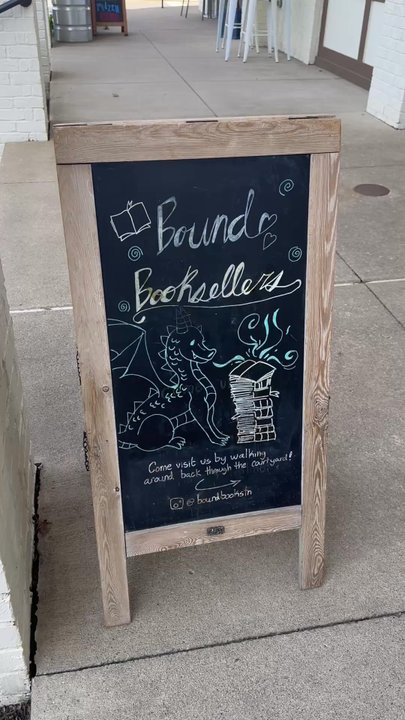 Bound
Booksellers
Come visit us by walking
around back through the courtyard!
@boundbookstn